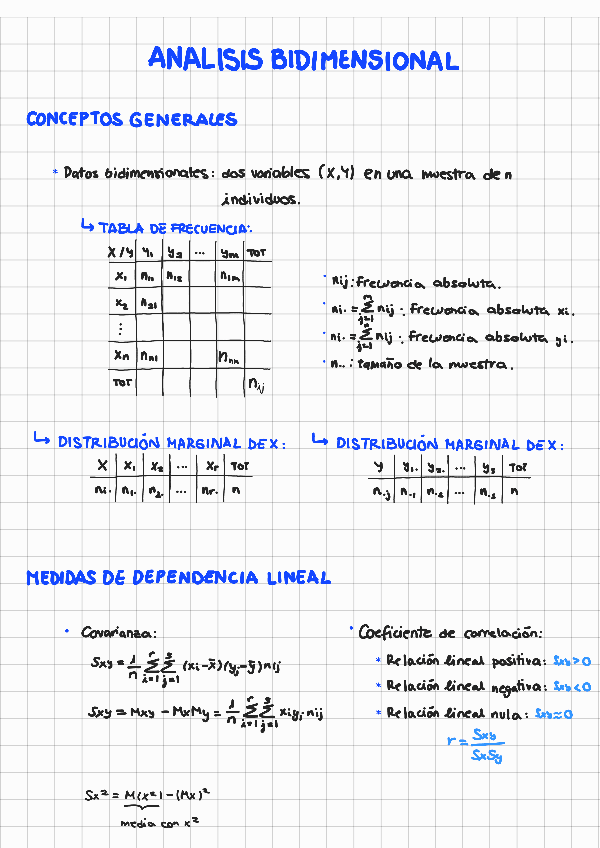 ANALISIS BIDIMENSIONAL
CONCEPTOS GENERALES
* Datos bidimensionales: dos variables (X,Y) en una muestra de n
individuos.
↳ TABLA DE FRECUENCIA:
X/Y y₁ y₂ ... yₘ TOT
X₁ n₁₁ n₁₂ n₁ₘ
X₂ n₂₁
⋮
Xn nn1 nnn
TOT nij
· nij: frecuencia absoluta.
· ni. = Σ nij : frecuencia absoluta xi.
· ni. = Σ nij : frecuencia absoluta yi.
· n.. : tamaño de la muestra.
↳ DISTRIBUCIÓN MARGINAL DE X:
X X₁ X₂ ... Xr TOT
ni. n₁. n₂. ... nr. n
↳ DISTRIBUCIÓN MARGINAL DE X:
Y y₁. y₂. ... ys TOT
n.j n.₁ n.₂ ... n.s n
MEDIDAS DE DEPENDENCIA LINEAL
· Covarianza:
Sxy = 1/n Σ(i=1, r) Σ(j=1, s) (xi-x̄)(yj-ȳ)nij
Sxy = Mxy - MxMy = 1/n Σ(i=1, r) Σ(j=1, s) xiyj nij
Sx² = M(x²) - (Mx)²
media con x²
· Coeficiente de correlación:
* Relación lineal positiva: Sxy>0
* Relación lineal negativa: Sxy<0
* Relación lineal nula: Sxy≈0
r = Sxy/SxSy